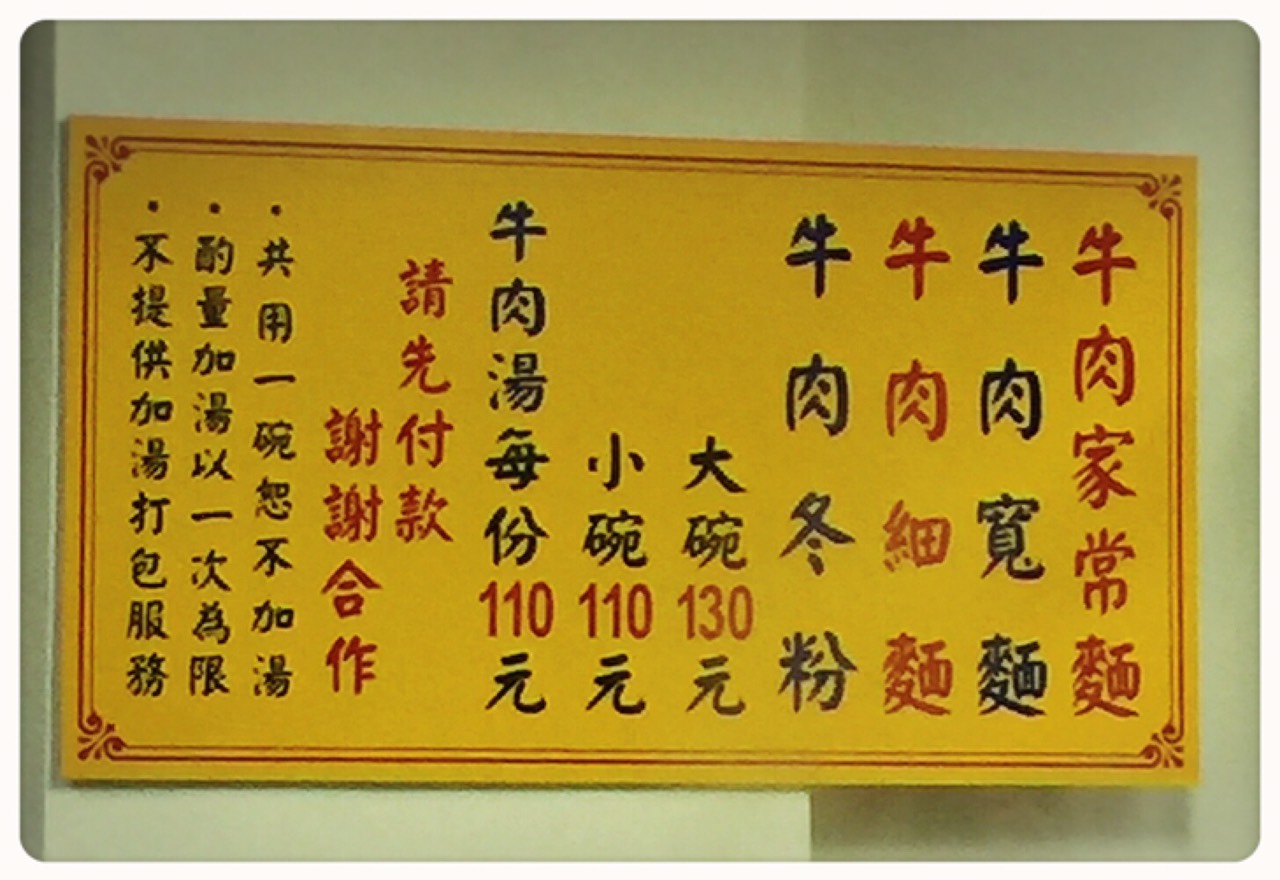 牛肉家常麵
牛肉寬麵
牛肉細麵
牛肉冬粉
大碗130元
小碗110元
牛肉湯每份110元
請先付款
謝謝合作
·共用一碗恕不加湯
·酌量加湯以一次為限
·不提供加湯打包服務